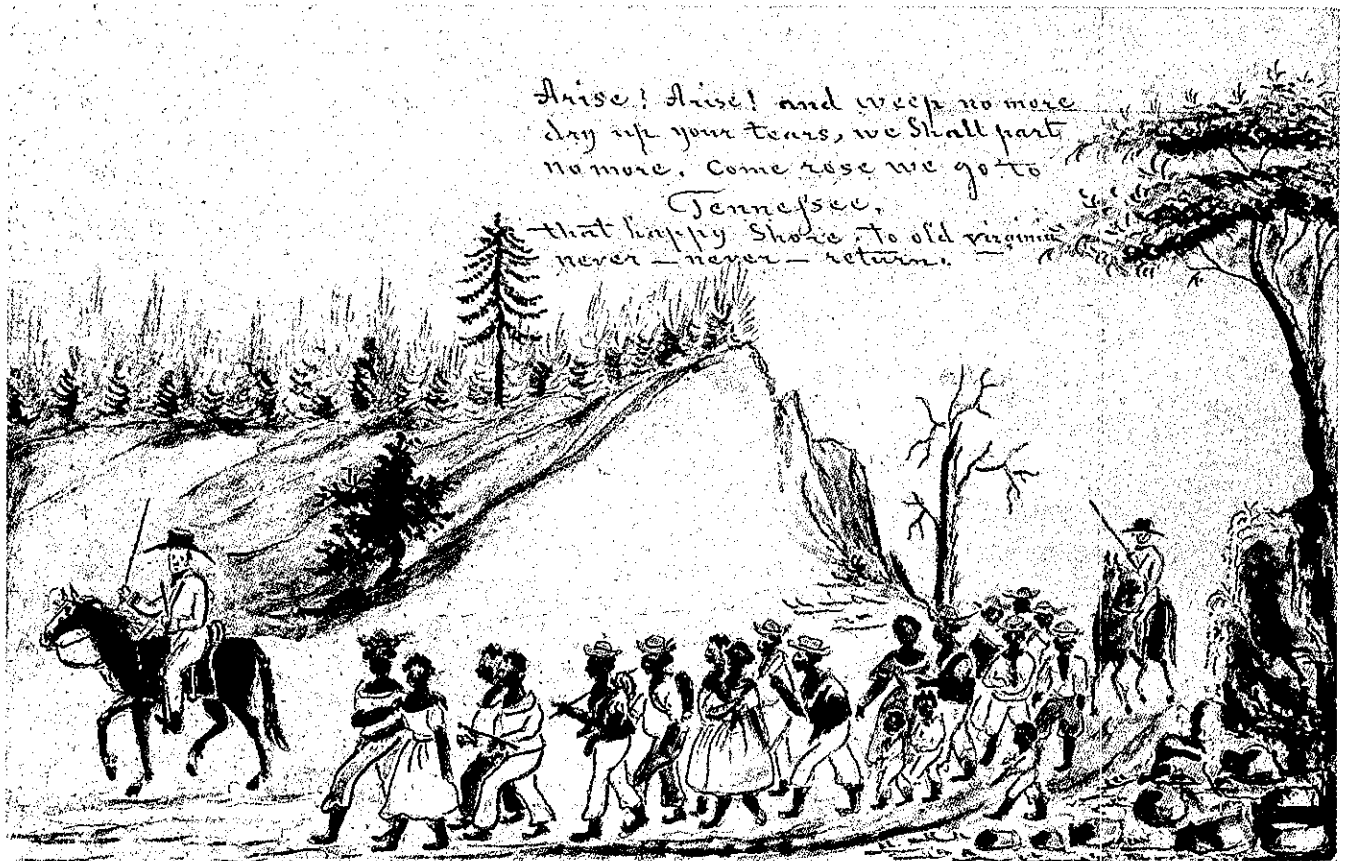 Arise! Arise! and weep no more
dry up your tears, we Shall part
no more. Come rose we go to
Tenneſsee,
that happy Shore. To old virginia
never — never — return.